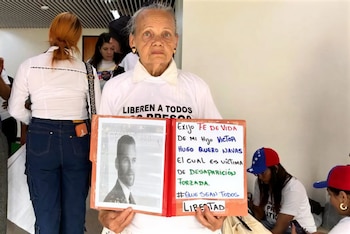 LIBEREN A TODOS
PRESOS
EXIJO FE DE VIDA
DE MI HIJO VICTOR
HUGO QUERO NAVAS
EL CUAL ES VÍCTIMA
DE DESAPARICIÓN
FORZADA.
#QUE SEAN TODOS
LIBERTAD